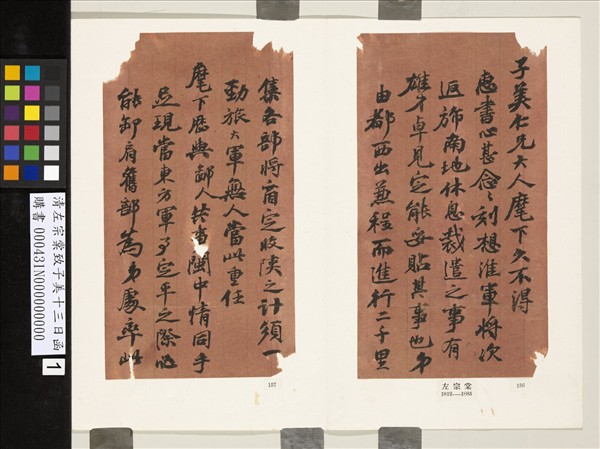 子美仁兄大人麾下久不得
惠書心甚念念刻想淮軍將次
返旆南地休息裁遣之事有
雄才卓見定能妥貼其事也弟
由都西出兼程而進行二千里
集各部將商定收陝之計須一
勁旅大軍無人當此重任
麾下歷與鄙人共事閩中情同手
足現當東方軍事定平之際必
能卸肩舊部為弟處率此
左宗棠
1812—1885
136
137
清左宗棠致子美十三日函
購書 000431N000000000
1